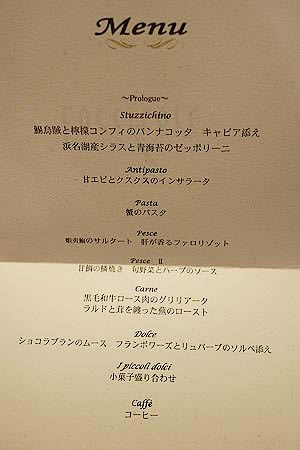 Menu
～Prologue～
Stuzzichino
鯣烏賊と檸檬コンフィのパンナコッタ　キャビア添え
浜名湖産シラスと青海苔のゼッポリーニ
Antipasto
甘エビとクスクスのインサラータ
Pasta
蟹のパスタ
Pesce
蝦夷鮑のサルタート　肝が香るファロリゾット
Pesce　Ⅱ
甘鯛の鱗焼き　旬野菜とハーブのソース
Carne
黒毛和牛ロース肉のグリリアータ
ラルドと茸を纏った のロースト
Dolce
ショコラブランのムース　フランボワーズとリュバーブのソルベ添え
I piccoli dolci
小菓子盛り合わせ
Caffè
コーヒー